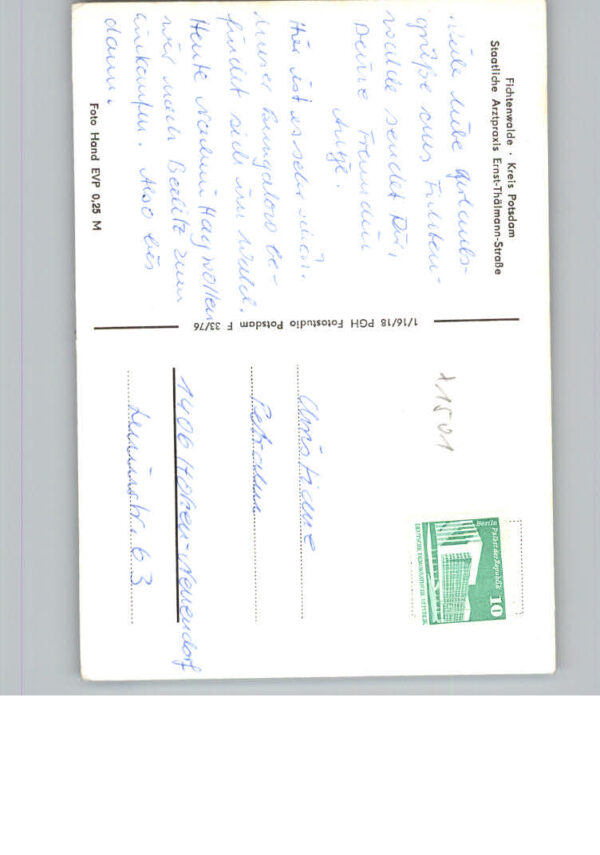 Fichtenwalde · Kreis Potsdam
Staatliche Arztpraxis Ernst-Thälmann-Straße
Viele liebe Urlaubs-
grüße aus Fichten-
walde sendet Dir,
Deine Freundin
Antje.
Hier ist es sehr schön.
Unser Bungalow be-
findet sich im Wald.
Heute Nachmittag wollen
wir nach Beelitz zum
einkaufen. Also bis
dann.
Foto Hand EVP 0,25 M
1/16/18 PGH Fotostudio Potsdam F 33/76
11501
Berlin Palast der Republik
10
DEUTSCHE DEMOKRATISCHE REPUBLIK
Christiane
1406 Hohen-Neuendorf
Leninstr. 63